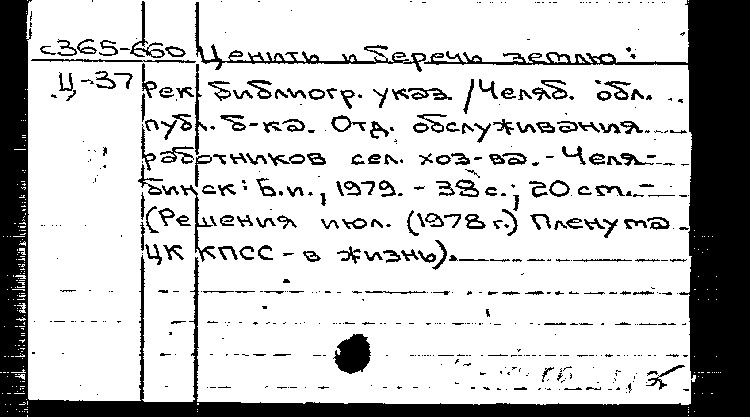 с365-660 Ценить и беречь землю:
Ц-37 Рек. библиогр. указ. /Челяб. обл.
публ. б-ка. Отд. обслуживания
работников сел. хоз-ва. - Челя-
бинск: Б.и., 1979. - 38 с.; 20 см. -
(Решения июл. (1978 г.) Пленума
ЦК КПСС - в жизнь).